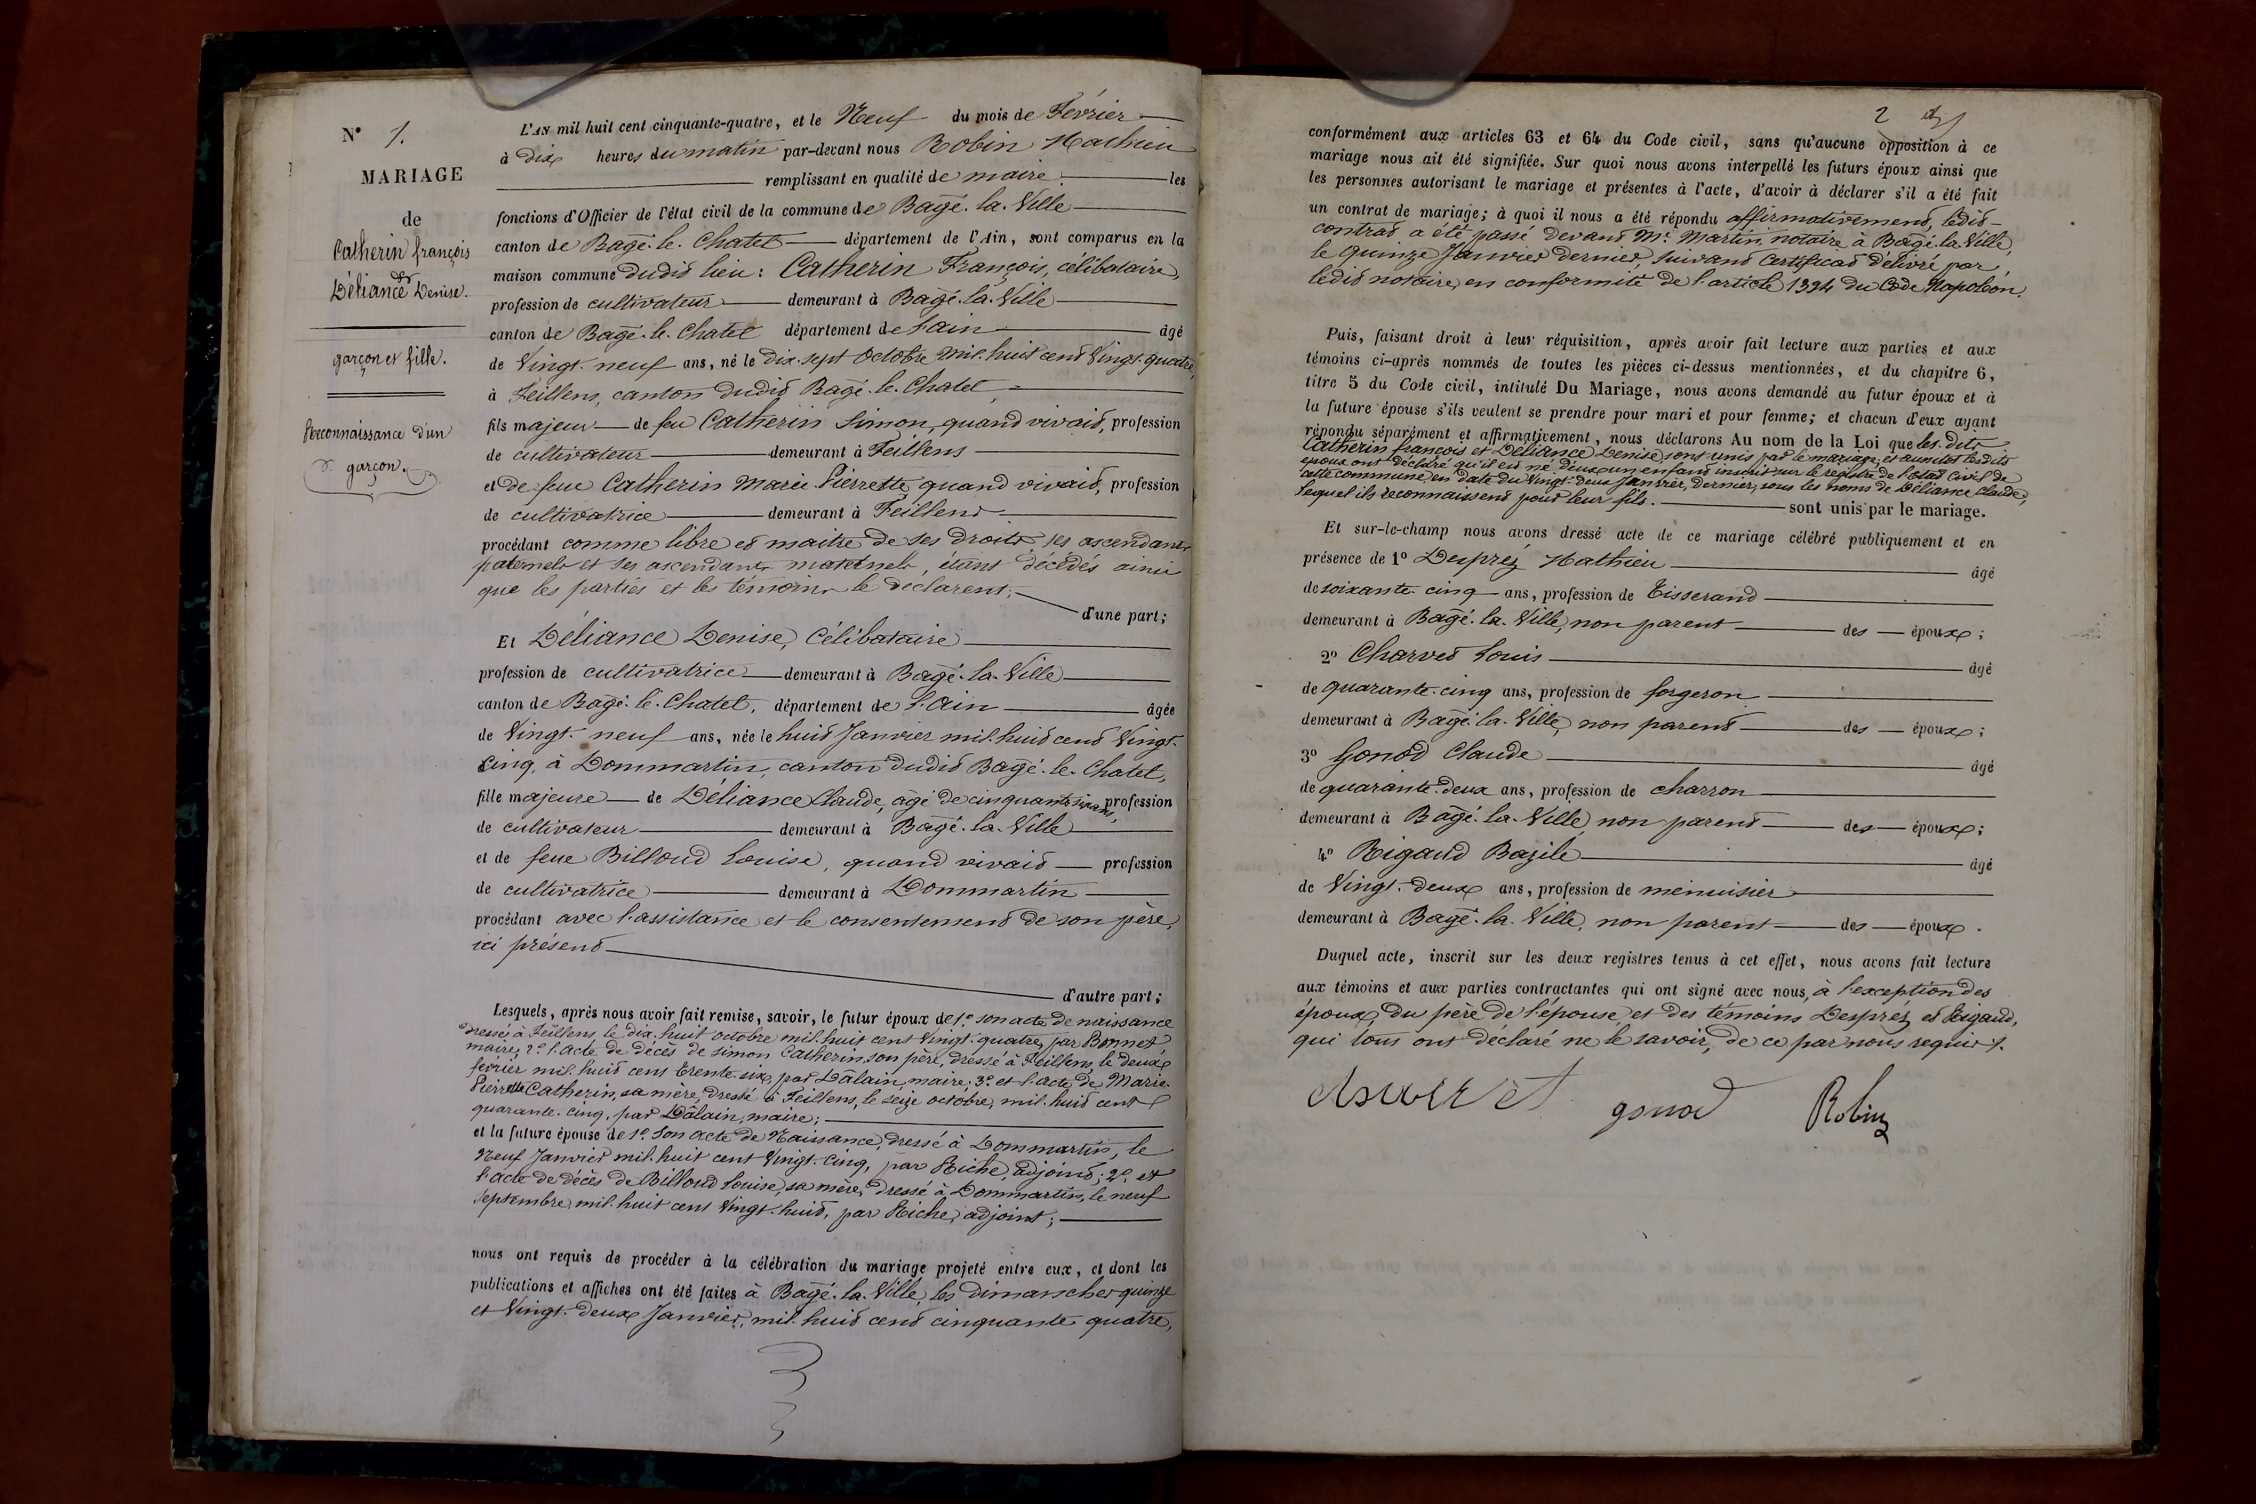 N° 1.
MARIAGE
de
Catherin françois
et
Déliance Denise.
garçon et fille.
Reconnaissance d'un
garçon.
L'AN mil huit cent cinquante-quatre, et le Neuf du mois de Février
à dix heures du matin par-devant nous Robin Mathieu
remplissant en qualité de maire les
fonctions d'Officier de l'état civil de la commune de Bagé-la-Ville
canton de Bagé-le-Chatel département de l'Ain, sont comparus en la
maison commune dudit lieu : Catherin François, célibataire,
profession de cultivateur demeurant à Bagé-la-Ville
canton de Bagé-le-Chatel département de l'ain âgé
de Vingt-neuf ans, né le dix-sept octobre mil-huit cent Vingt-quatre,
à Feillens, canton dudit Bagé-le-Chatel,
fils majeur de feu Catherin Simon, quand vivait, profession
de cultivateur demeurant à Feillens
et de feue Catherin Marie Pierrette, quand vivait, profession
de cultivatrice demeurant à Feillens
procédant comme libre et maitre de ses droits, ses ascendants
paternels et ses ascendants maternels, étant décédés ainsi
que les parties et les témoins le déclarent;
d'une part;
Et Déliance Denise, Célibataire
profession de cultivatrice demeurant à Bagé-la-Ville
canton de Bagé-le-Chatel, département de l'Ain âgée
de Vingt-neuf ans, née le huit Janvier mil-huit cent Vingt-
Cinq, à Dommartin, canton dudit Bagé-le-Chatel,
fille majeure de Déliance Claude, âgé de cinquante six ans, profession
de cultivateur demeurant à Bagé-la-Ville
et de feue Billoud Louise, quand vivait profession
de cultivatrice demeurant à Dommartin
procédant avec l'assistance et le consentement de son père,
ici présent
d'autre part;
Lesquels, après nous avoir fait remise, savoir, le futur époux de 1° son acte de naissance
dressé à Feillens, le dix-huit octobre mil-huit cent Vingt-quatre, par Bonnet
maire; 2° l'acte de décès de simon Catherin son père, dressé à Feillens, le deux
février mil-huit cent trente six, par Dalain, maire; 3° et l'acte de Marie-
Pierrette Catherin, sa mère, dressé à Feillens, le seize octobre, mil-huit cent
quarante-cinq, par Dalain, maire;
et la future épouse de 1° son acte de Naissance, dressé à Dommartin, le
Neuf Janvier mil-huit cent Vingt-Cinq, par Riche, adjoint; 2° et
l'acte de décès de Billoud Louise, sa mère, dressé à Dommartin, le neuf
septembre mil-huit cent Vingt-huit, par Riche, adjoint;
nous ont requis de procéder à la célébration du mariage projeté entre eux, et dont les
publications et affiches ont été faites à Bagé-la-Ville, les dimanches quinze
et Vingt-deux Janvier, mil-huit cent cinquante-quatre,
2
conformément aux articles 63 et 64 du Code civil, sans qu'aucune opposition à ce
mariage nous ait été signifiée. Sur quoi nous avons interpellé les futurs époux ainsi que
les personnes autorisant le mariage et présentes à l'acte, d'avoir à déclarer s'il a été fait
un contrat de mariage; à quoi il nous a été répondu affirmativement, ledit
contrat a été passé devant Mr. Martin, notaire à Bagé-la-Ville,
le quinze Janvier dernier, suivant certificat délivré par
ledit notaire, en conformité de l'article 1394 du Code Napoléon.
Puis, faisant droit à leur réquisition, après avoir fait lecture aux parties et aux
témoins ci-après nommés de toutes les pièces ci-dessus mentionnées, et du chapitre 6,
titre 5 du Code civil, intitulé Du Mariage, nous avons demandé au futur époux et à
la future épouse s'ils veulent se prendre pour mari et pour femme; et chacun d'eux ayant
répondu séparément et affirmativement, nous déclarons Au nom de la Loi que les dits
Catherin françois et Déliance Denise, sont unis par le mariage; et aussitôt lesdits
époux ont déclaré qu'il est né d'eux un enfant inscrit sur le registre de l'état civil de
cette commune, en date du Vingt-deux Janvier, dernier, sous les noms de Déliance Claude,
lequel ils reconnaissent pour leur fils. sont unis par le mariage.
Et sur-le-champ nous avons dressé acte de ce mariage célébré publiquement et en
présence de 1° Després Mathieu âgé
de soixante-cinq ans, profession de Tisserand
demeurant à Bagé-la-Ville, non parent des époux;
2° Charvet Louis âgé
de quarante-cinq ans, profession de forgeron
demeurant à Bagé-la-Ville, non parent des époux;
3° Gonod Claude âgé
de quarante-deux ans, profession de charron
demeurant à Bagé-la-Ville, non parent des époux;
4° Rigaud Bazile âgé
de Vingt-deux ans, profession de menuisier
demeurant à Bagé-la-Ville, non parent des époux.
Duquel acte, inscrit sur les deux registres tenus à cet effet, nous avons fait lecture
aux témoins et aux parties contractantes qui ont signé avec nous, à l'exception des
époux, du père de l'épouse et des témoins Després et Rigaud,
qui tous ont déclaré ne le savoir, de ce par nous requis.
charvet gonod Robin